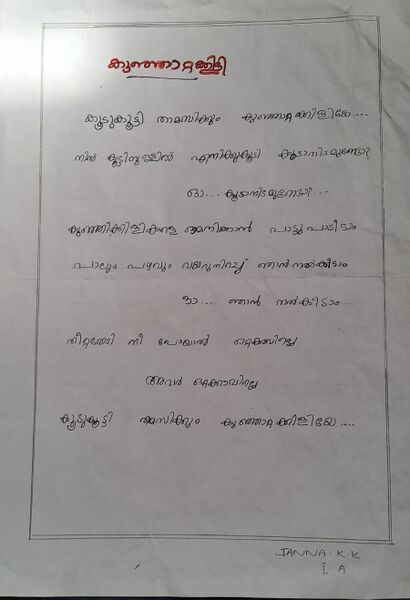 കുഞ്ഞാറ്റക്കിളി
കൂടുകൂട്ടി താമസിക്കും കുഞ്ഞാറ്റക്കിളിയേ....
നിൻ കൂട്ടിനുള്ളിൽ എനിക്കുകൂടി കൂടാനിടമുണ്ടോ?
ഓ... കൂടാനിടമുണ്ടോ?...
കുഞ്ഞിക്കിളികളെ ഓമനിക്കാൻ പാട്ടു പാടിടാം
പാലും പഴവും വയറുനിറച്ച് ഞാൻ നൽകിടാം
ഓ.... ഞാൻ നൽകിടാം
തീറ്റതേടി നീ പോയാൽ ഒറ്റക്കാവില്ലേ
അവർ ഒറ്റക്കാവില്ലേ
കൂടുകൂട്ടി താമസിക്കും കുഞ്ഞാറ്റക്കിളിയേ....
JANNA. K. K
I A